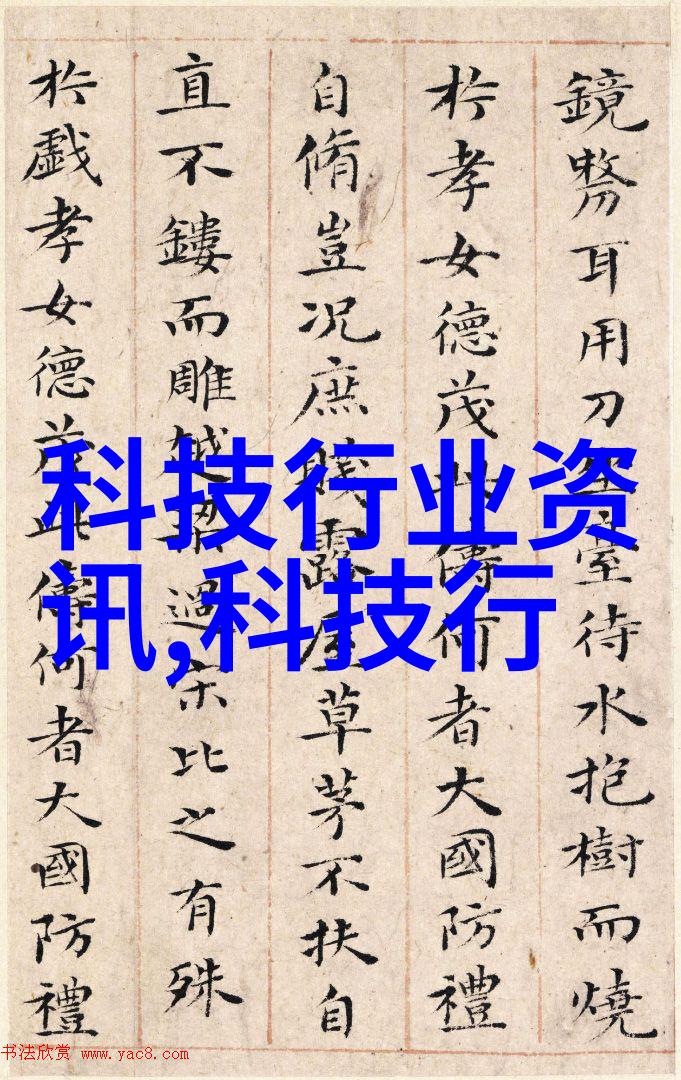 鏡剺耳用刀坐臺待水抱樹而燒
於孝女德茂此儔何者大國防禮
自脩豈况庶賤露屋草茅不扶自
直不鏤而雕越梁過宋比之有殊
於戲孝女德茂此儔何者大國防禮
科技行业资
讯,科技行
书法欣赏 www.yac8.com